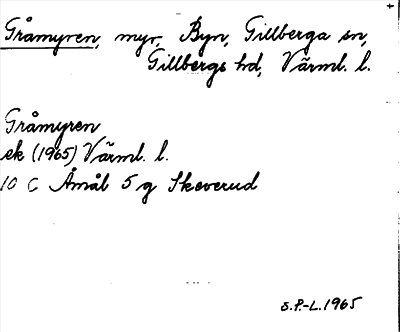 Gråmyren, myr, Byn, Gillberga sn,
Gillbergs hd, Värml. l.
Gråmyren
ek (1965) Värml. l.
10 C Åmål 5 g Skeverud
S.P.-L. 1965